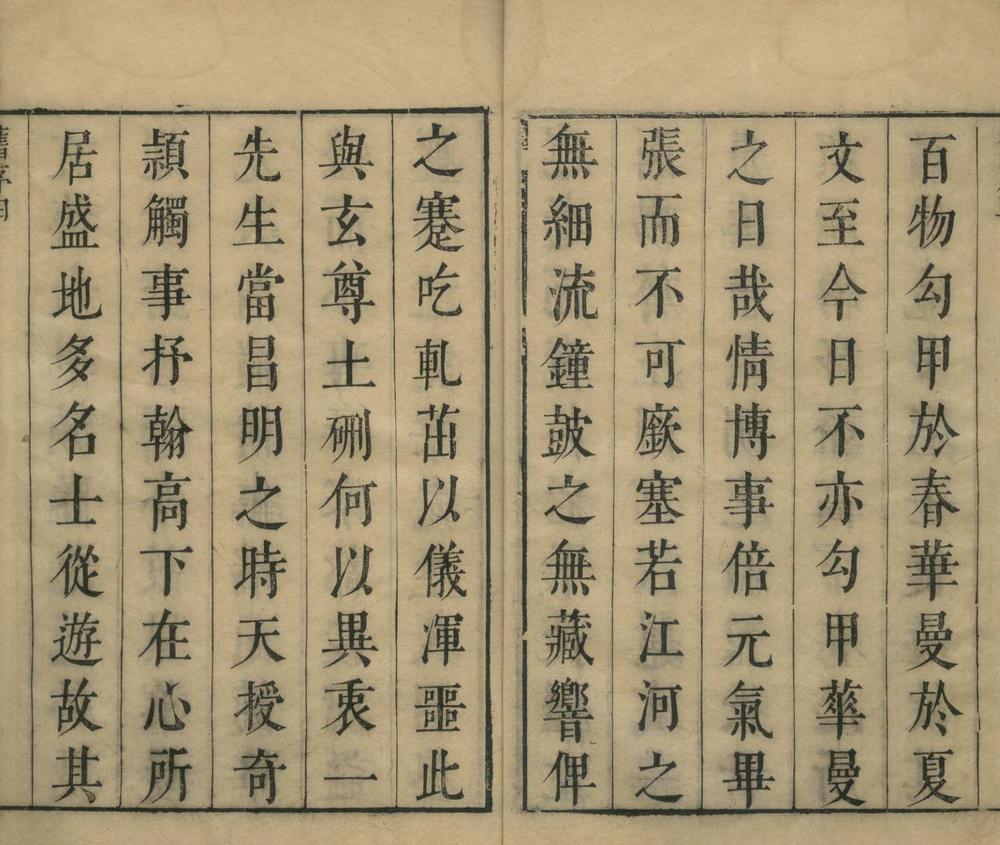 百物勾甲於春華曼於夏
文至今日不亦勾甲華曼
之日哉情博事倍元氣畢
張而不可厥塞若江河之
無細流鐘鼓之無藏響俾
之蹇吃軋茁以儀渾噩此
與玄尊土硎何以異袠一
先生當昌明之時天授奇
頴觸事抒翰高下在心所
居盛地多名士從遊故其